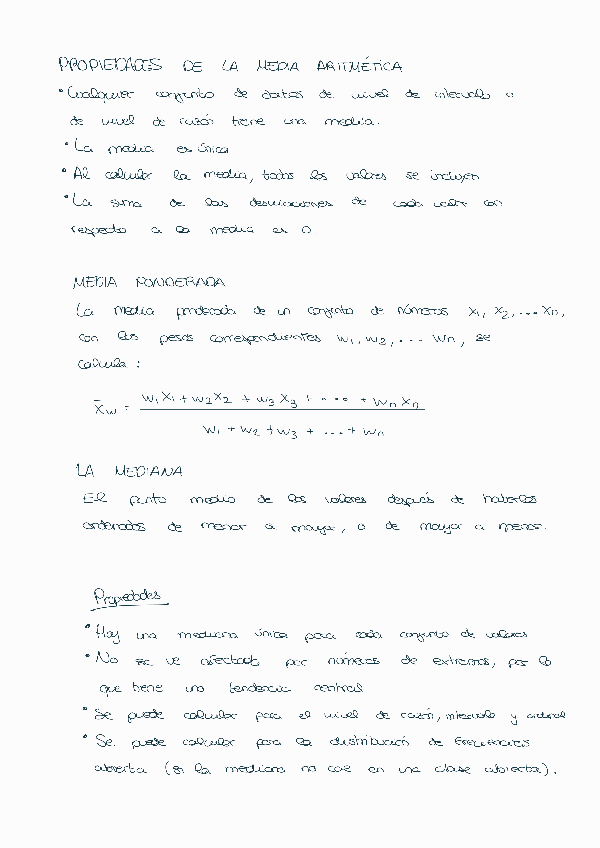 PROPIEDADES DE LA MEDIA ARITMÉTICA
• Cualquier conjunto de datos de nivel de intervalo o
de nivel de razón tiene una media.
• La media es única
• Al calcular la media, todos los valores se incluyen
• La suma de las desviaciones de cada valor con
respecto a la media es 0
MEDIA PONDERADA
La media ponderada de un conjunto de números X₁, X₂, ... Xn,
con los pesos correspondientes w₁, w₂, ... wn, se
calcula :
X̄w = (w₁X₁ + w₂X₂ + w₃X₃ + ... + wnXn) / (w₁ + w₂ + w₃ + ... + wn)
LA MEDIANA
El punto medio de los valores después de haberlos
ordenados de menor a mayor, o de mayor a menor.
Propiedades
• Hay una mediana única para cada conjunto de valores
• No se ve afectada por números de extremos, por lo
que tiene una tendencia central
• Se puede calcular para el nivel de razón, intervalo y ordinal
• Se puede calcular para la distribución de frecuencias
abierta (si la mediana no cae en una clase abierta).